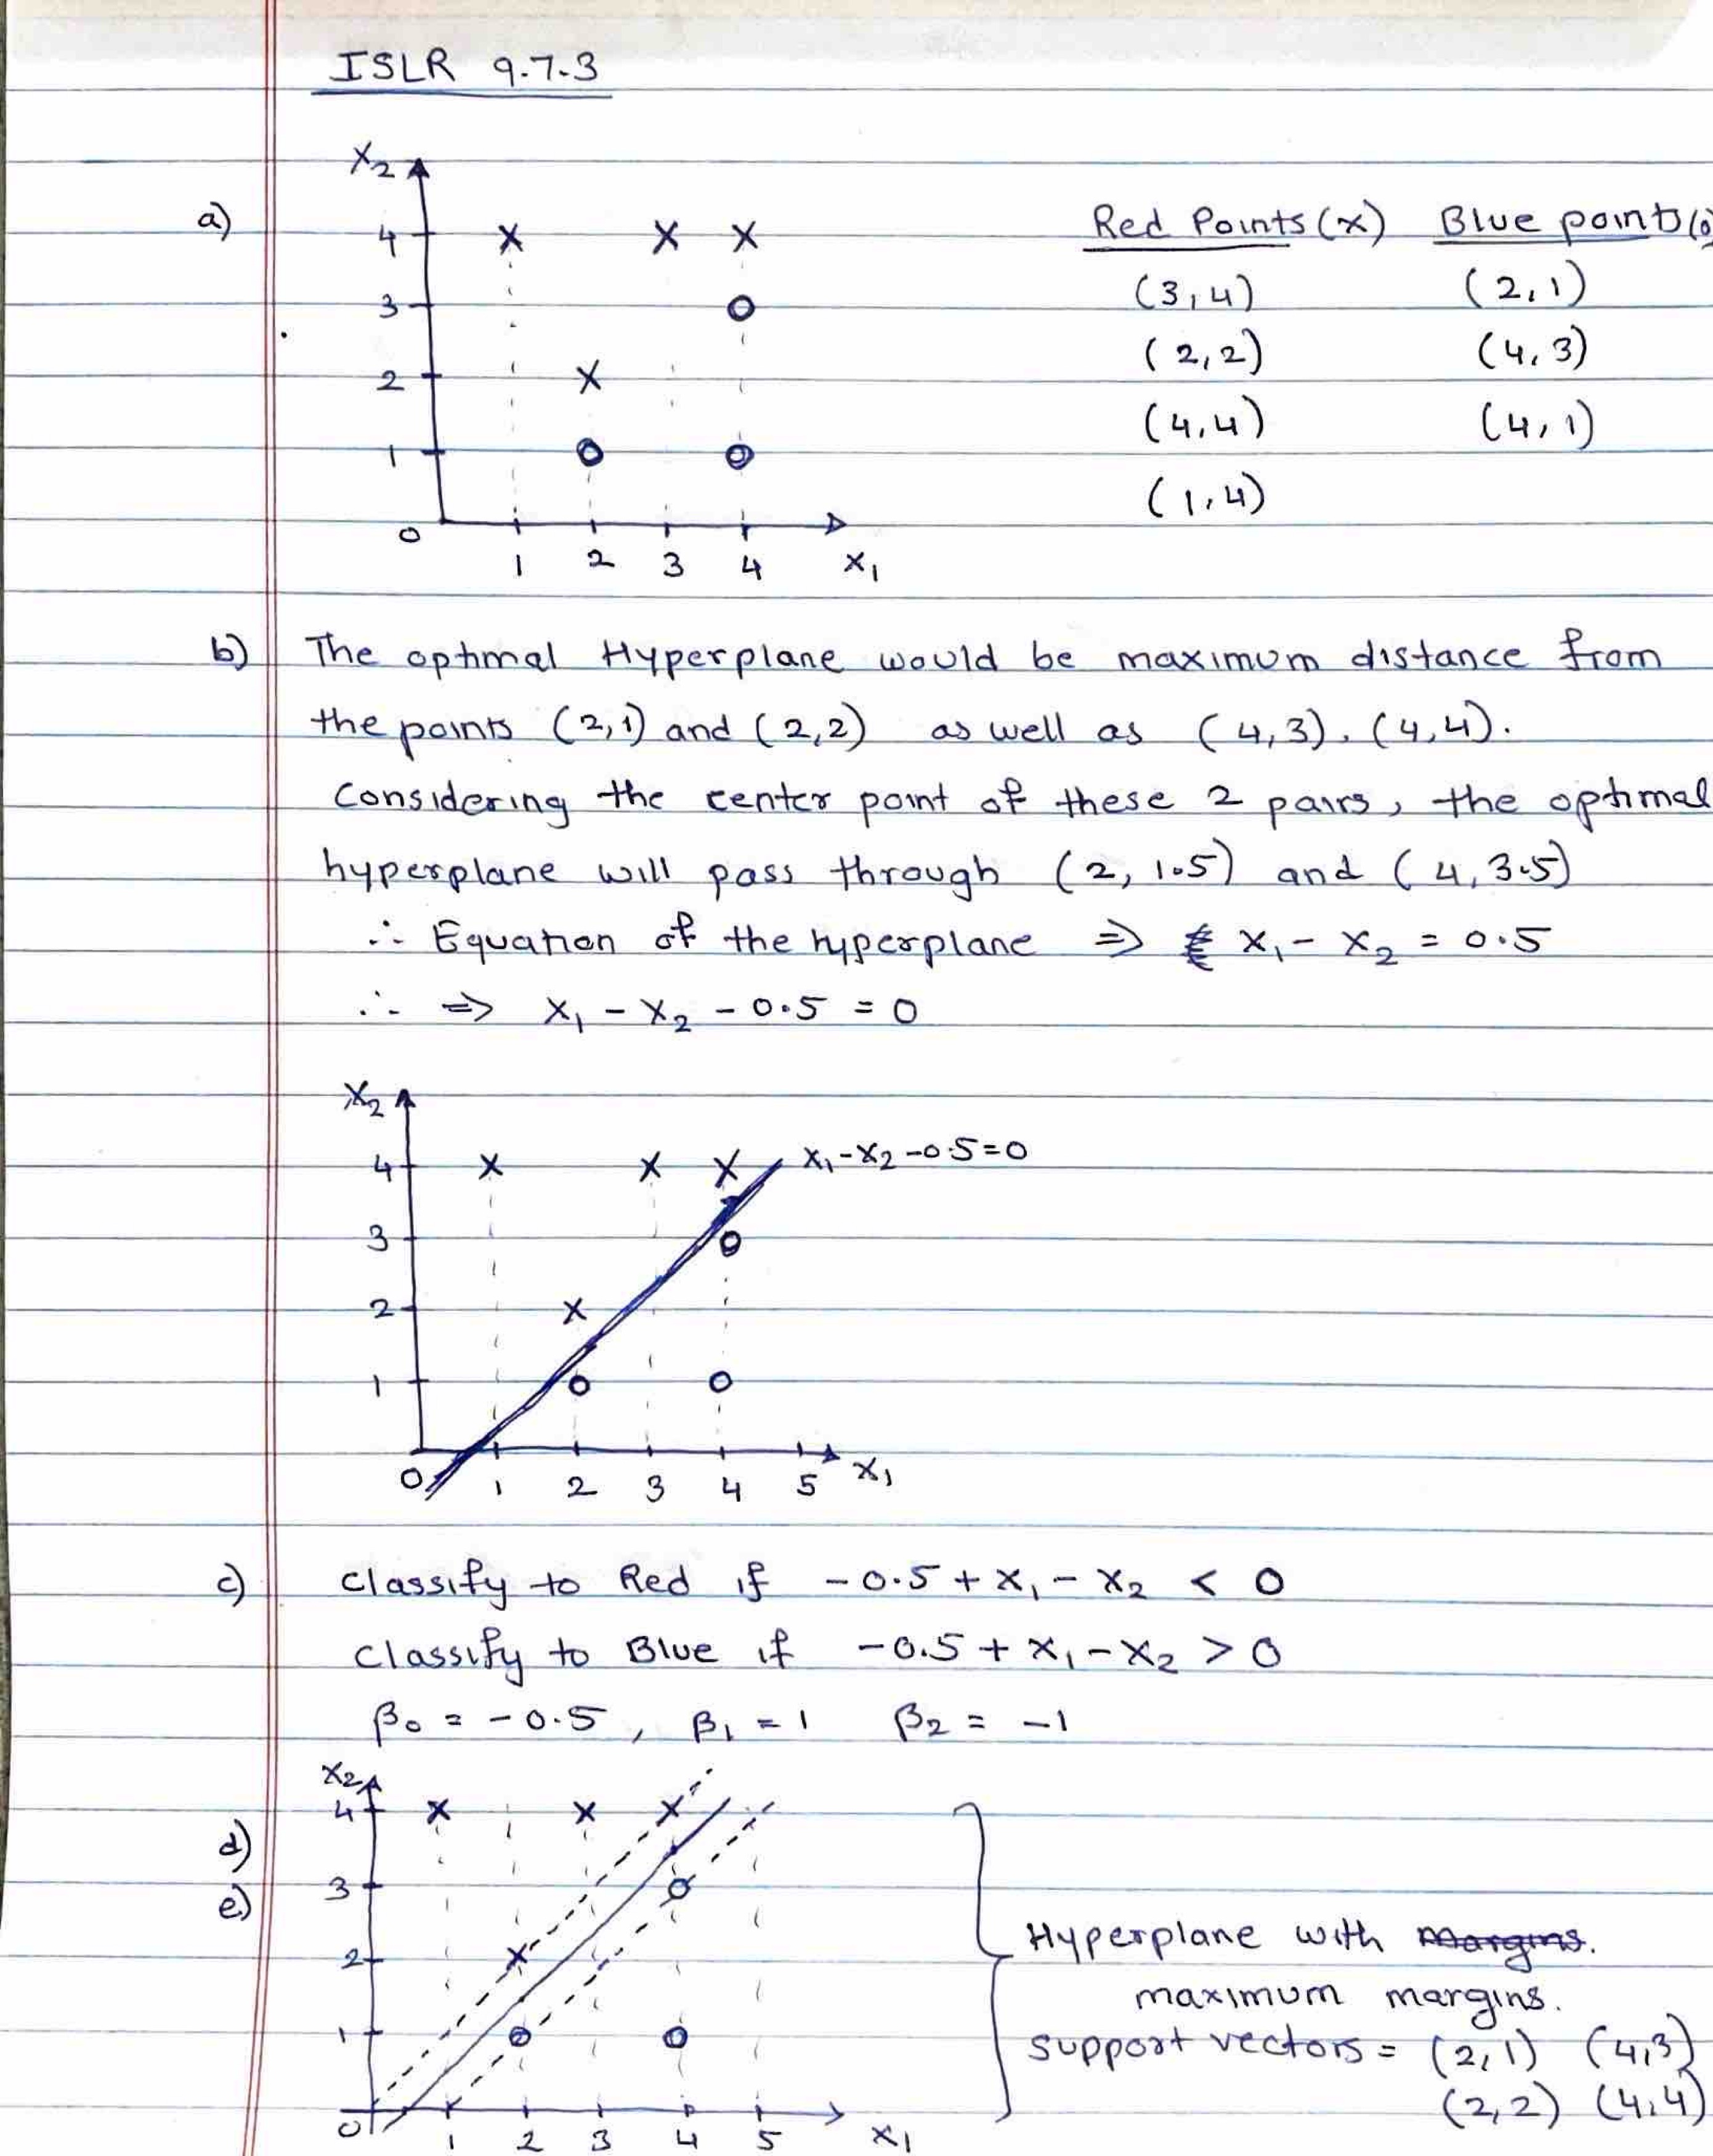 ISLR 9.7.3
a)
X2
4
3
2
1
0
1 2 3 4 X1
Red Points (x) Blue points (o)
(3,4) (2,1)
(2,2) (4,3)
(4,4) (4,1)
(1,4)
b) The optimal Hyperplane would be maximum distance from
the points (2,1) and (2,2) as well as (4,3), (4,4).
Considering the center point of these 2 pairs, the optimal
hyperplane will pass through (2, 1.5) and (4, 3.5)
∴ Equation of the hyperplane ⇒ X1 - X2 = 0.5
∴ ⇒ X1 - X2 - 0.5 = 0
X2
X1-X2-0.5=0
4
3
2
1
0
1 2 3 4 5 X1
c) Classify to Red if -0.5 + X1 - X2 < 0
Classify to Blue if -0.5 + X1 - X2 > 0
β0 = -0.5, β1 = 1 β2 = -1
d)
e)
X2
4
3
2
1
0
1 2 3 4 5 X1
Hyperplane with Margins.
maximum margins.
support vectors = (2,1) (4,3)
(2,2) (4,4)